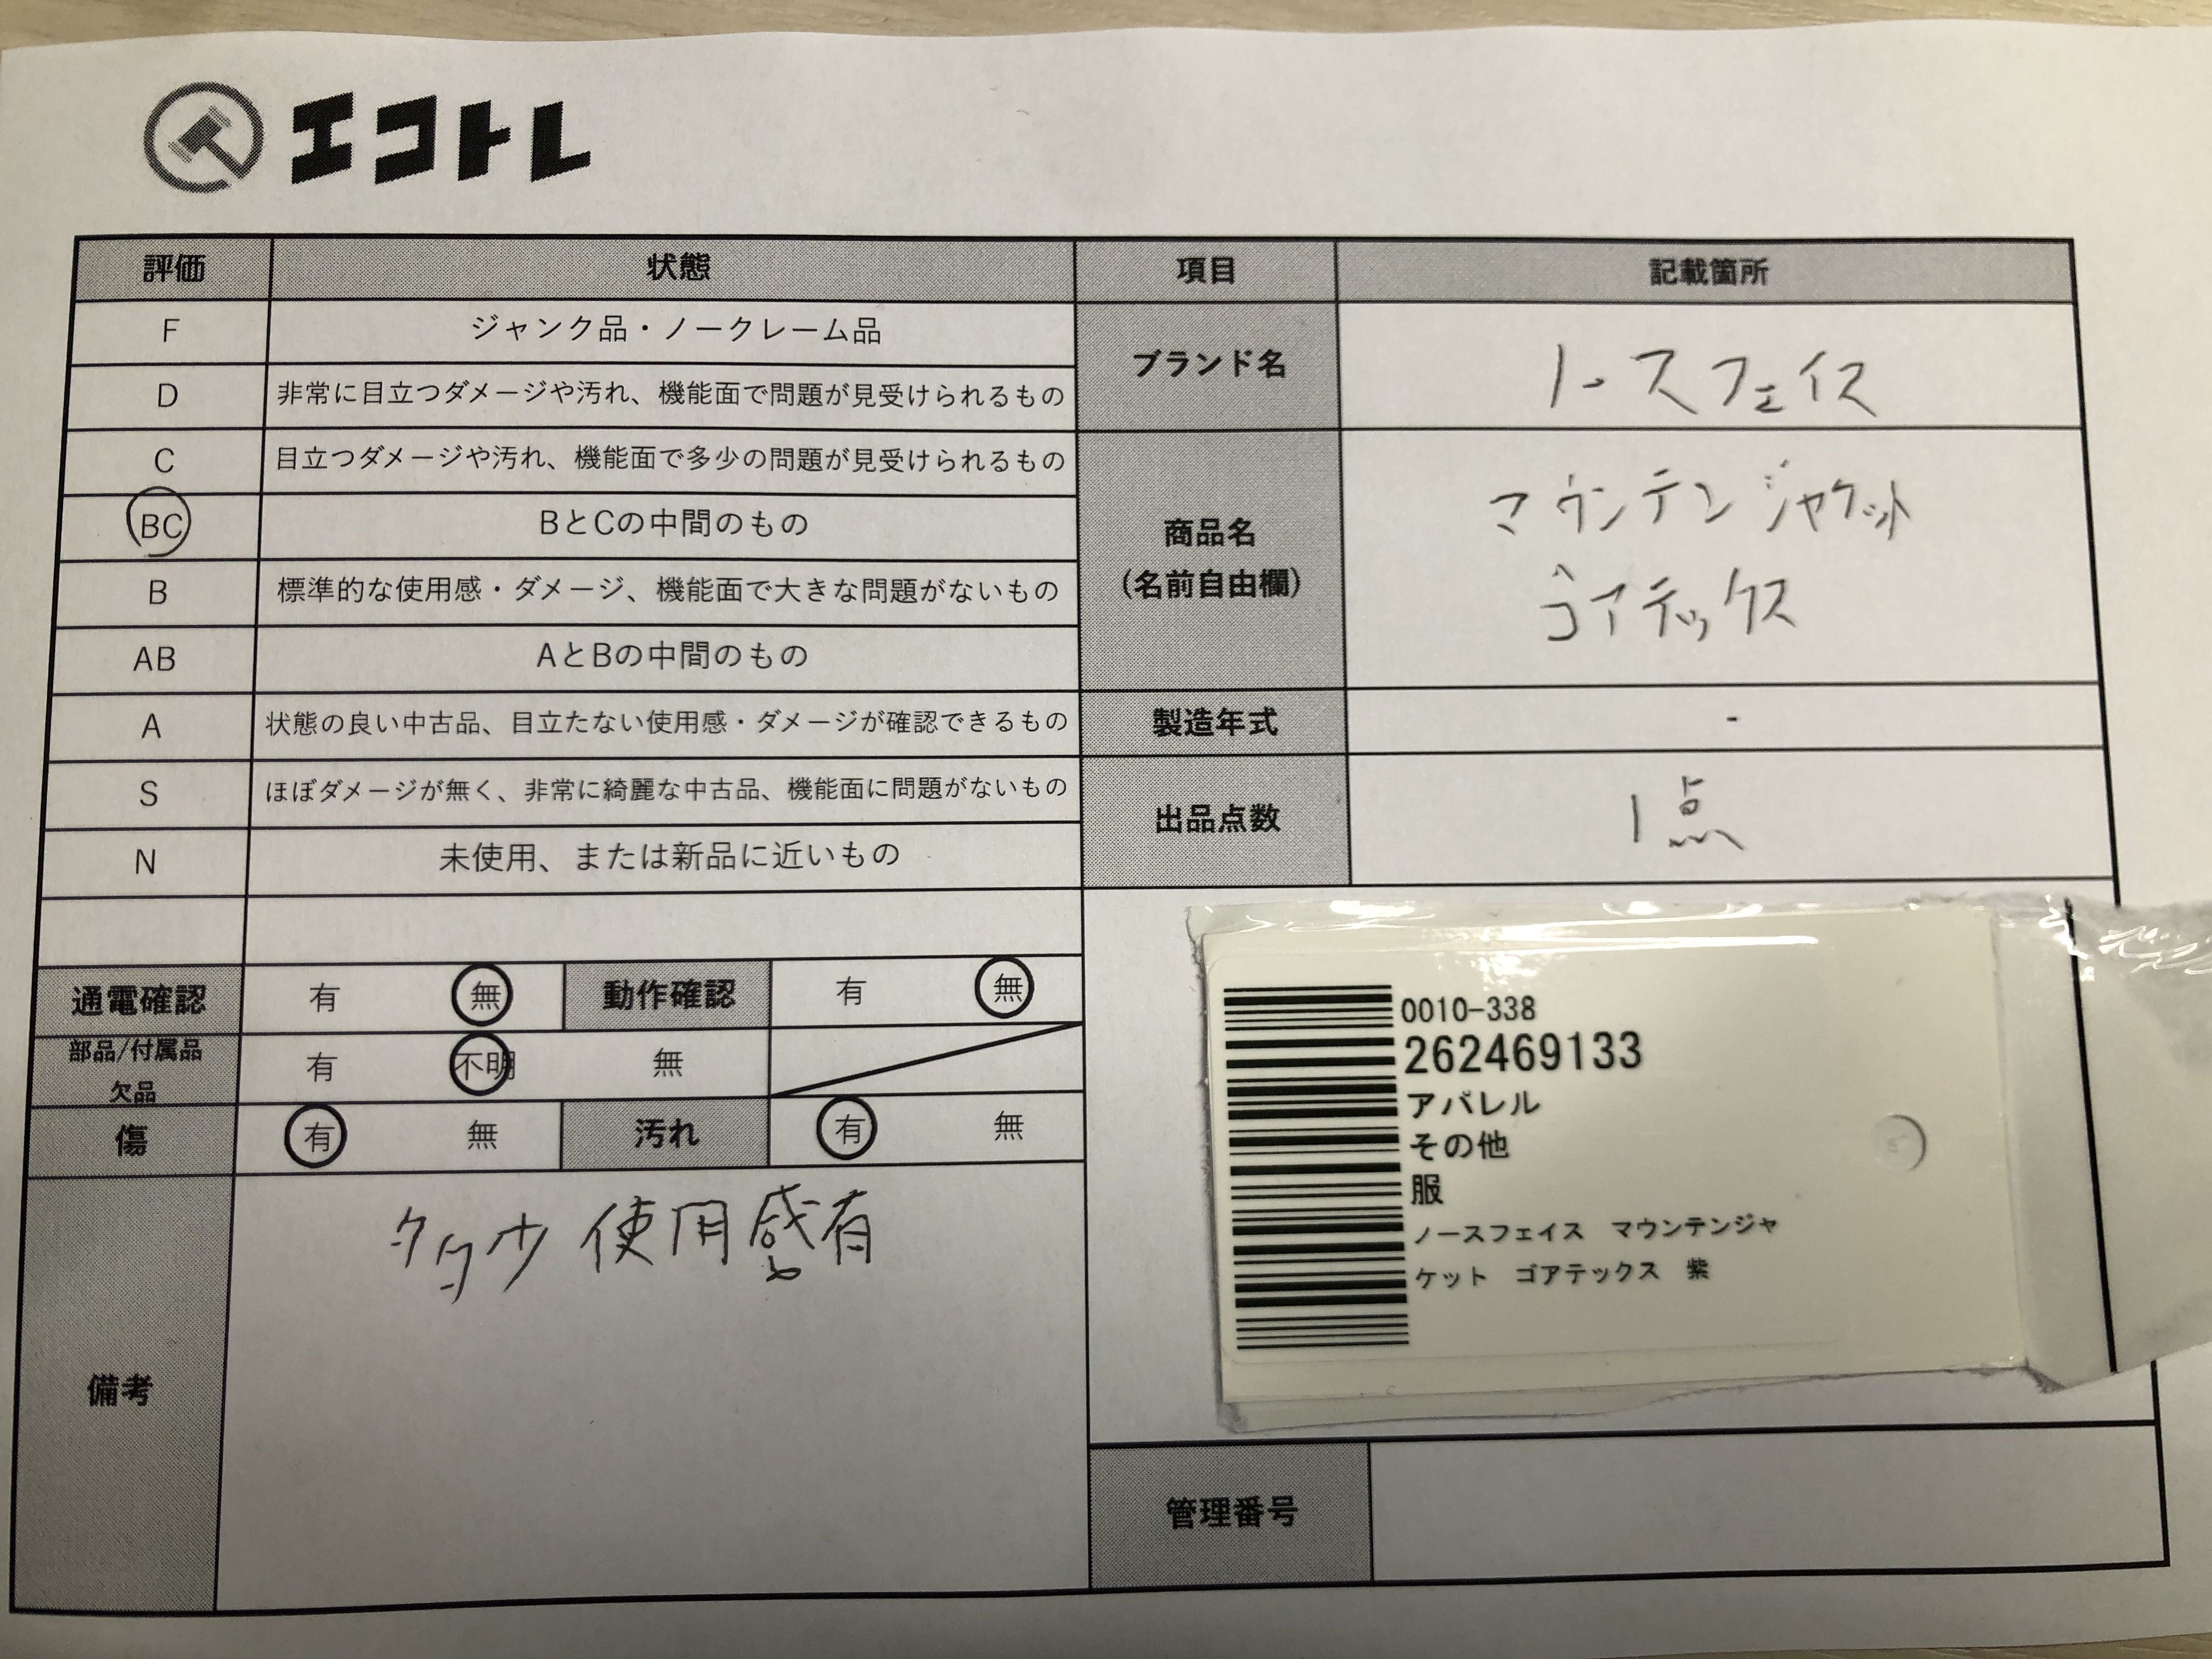 エコトレ
評価 状態 項目 記載箇所
F ジャンク品・ノークレーム品
D 非常に目立つダメージや汚れ、機能面で問題が見受けられるもの
ブランド名 ノースフェイス
C 目立つダメージや汚れ、機能面で多少の問題が見受けられるもの
BC BとCの中間のもの
B 標準的な使用感・ダメージ、機能面で大きな問題がないもの
AB AとBの中間のもの
商品名
(名前自由欄)
マウンテンジャケット
ゴアテックス
A 状態の良い中古品、目立たない使用感・ダメージが確認できるもの
製造年式 -
S ほぼダメージが無く、非常に綺麗な中古品、機能面に問題がないもの
N 未使用、または新品に近いもの
出品点数 1点
通電確認 有 無 動作確認 有 無
部品/付属品
欠品
有 不明 無
傷 有 無 汚れ 有 無
備考
多少使用感有
0010-338
262469133
アパレル
その他
服
ノースフェイス マウンテンジャ
ケット ゴアテックス 紫
管理番号